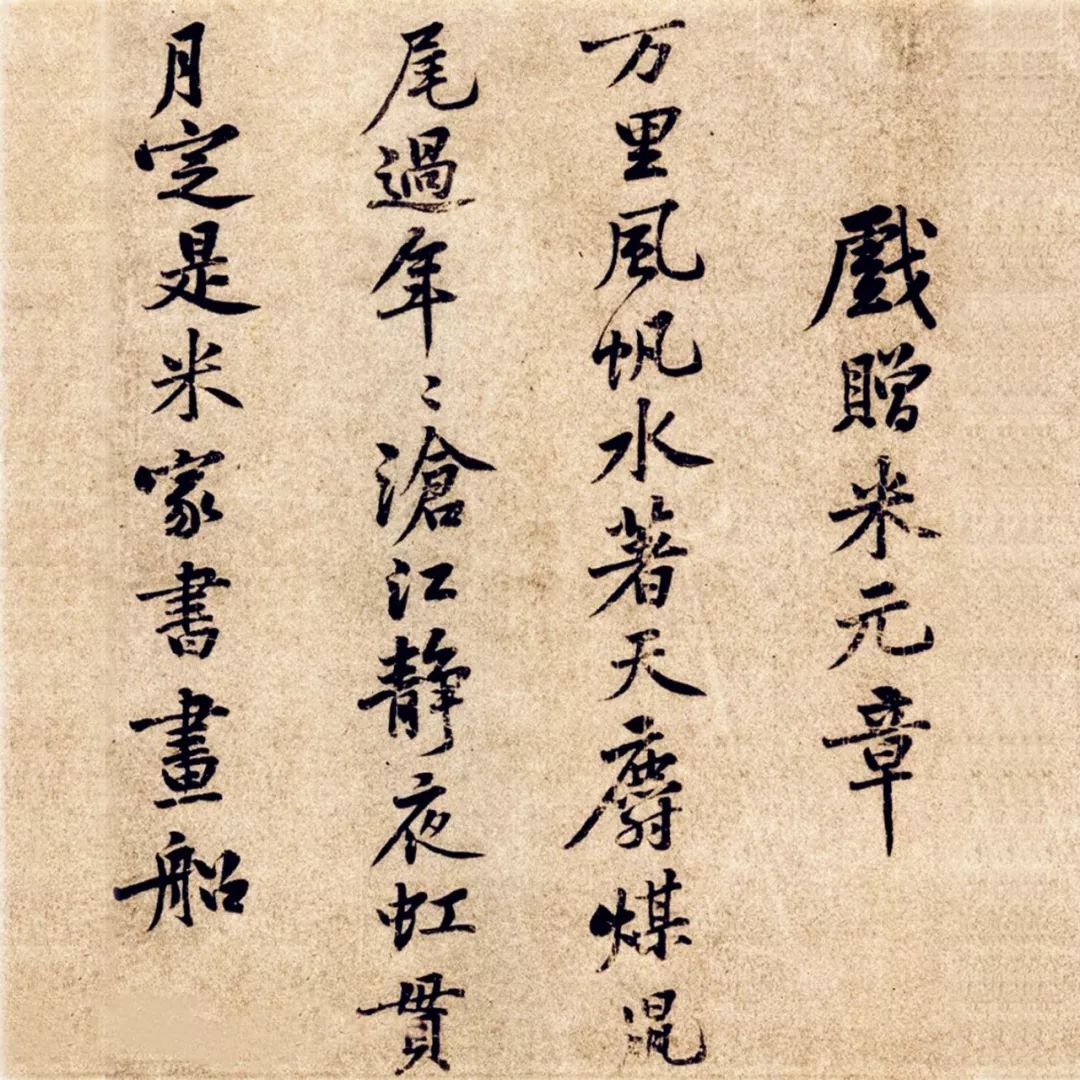 戲贈米元章
万里風帆水著天麝煤鼠
尾過年〻滄江靜夜虹貫
月定是米家書畫船